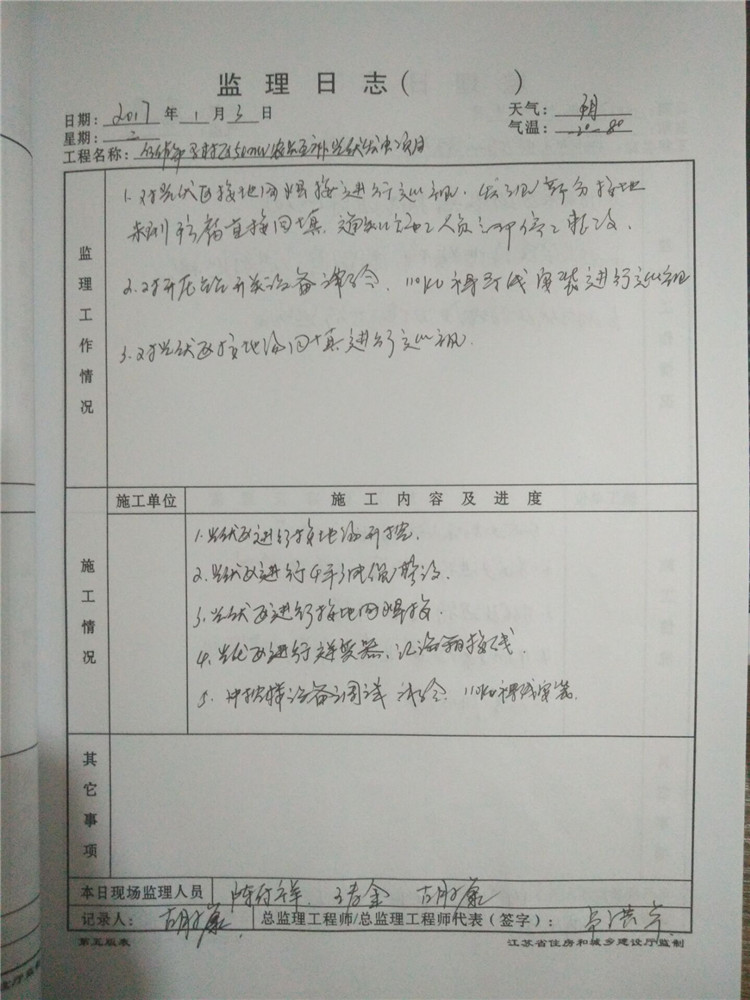 监理日志( )
日期: 2017 年 1 月 3 日
天气: 阴
星期: 二
气温: 2°-8°
工程名称: 50MW 农光互补光伏发电项目
监理工作情况
1.对光伏区接地网焊接进行巡视,发现部分接地
未刷防腐直接回填,通知施工人员立即停工整改.
2.对开展站开关设备试验,110kV 导线安装进行巡视
3.对光伏区接地沟回填进行巡视.
施工单位
施工内容及进度
施工情况
1.光伏区进行接地沟开挖.
2.光伏区进行
3.光伏区进行接地网焊接.
4.光伏区进行逆变器、汇流箱接线.
5.中控楼设备调试 试验, 110kV 导线安装.
其它事项
本日现场监理人员
记录人:
总监理工程师/总监理工程师代表(签字):
第五版表
江苏省住房和城乡建设厅监制